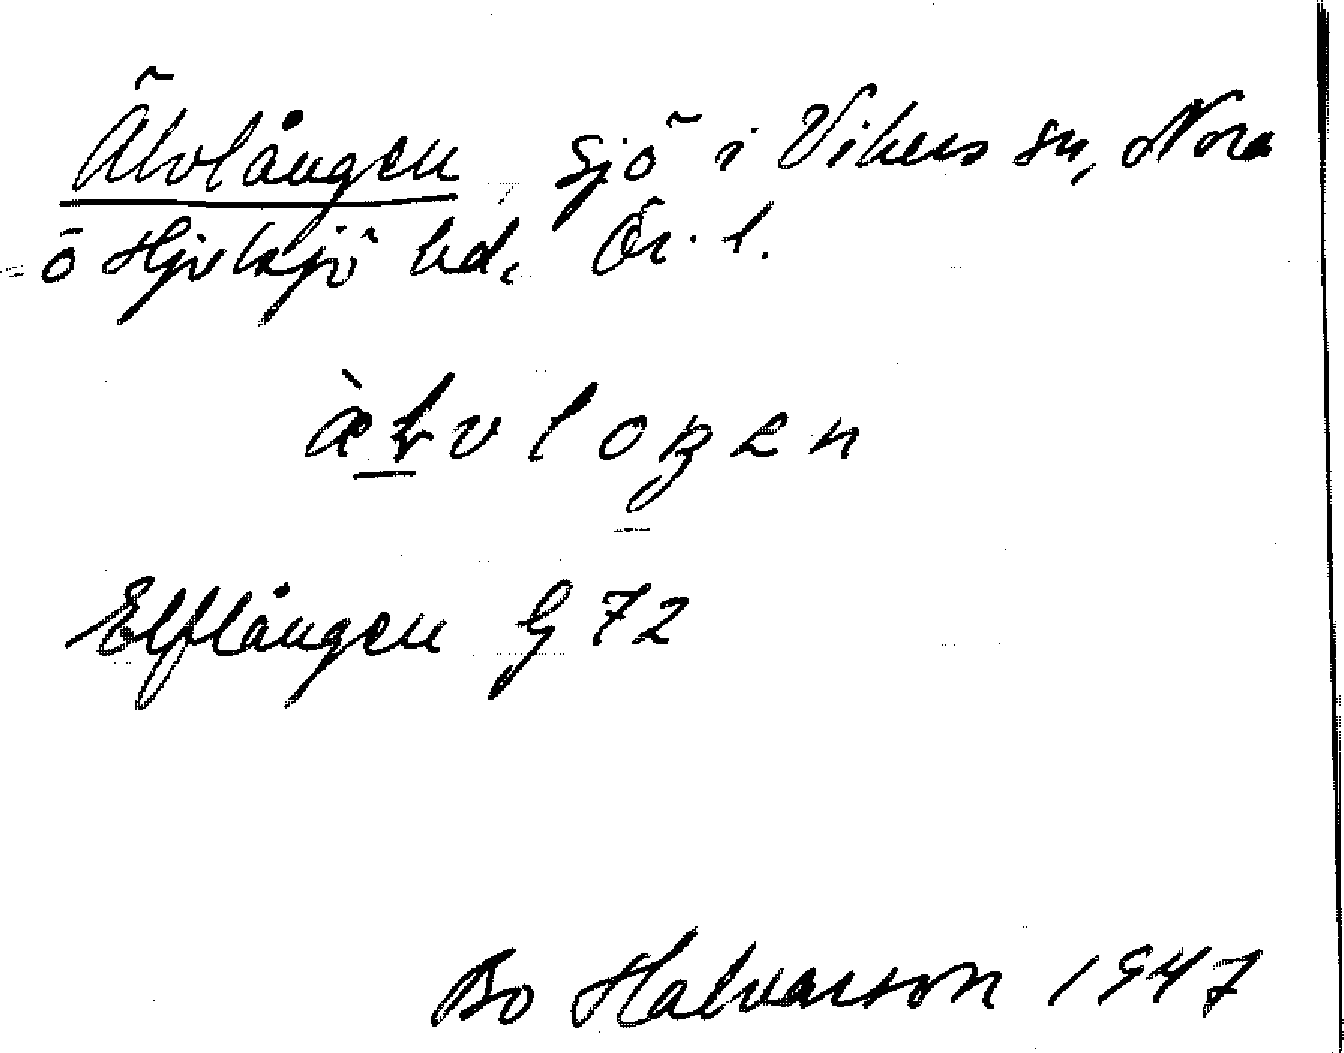 Älvlången, sjö i Vikers sn, Nora
o Hjulsjö hd, Ör. l.
Elflången G 72
Bo Halvarson 1947